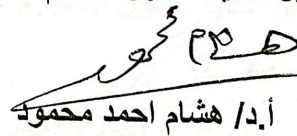 أ.د/ هشام احمد محمود